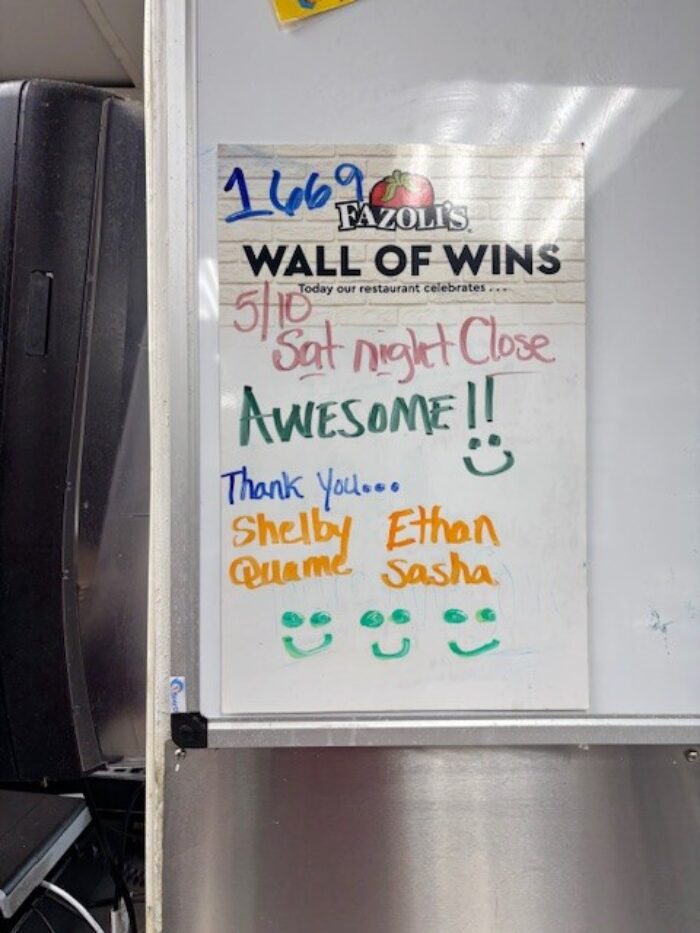 1669
FAZOLI'S
WALL OF WINS
Today our restaurant celebrates...
5/10
Sat night Close
AWESOME!!
Thank You...
Shelby Ethan
Quame Sasha